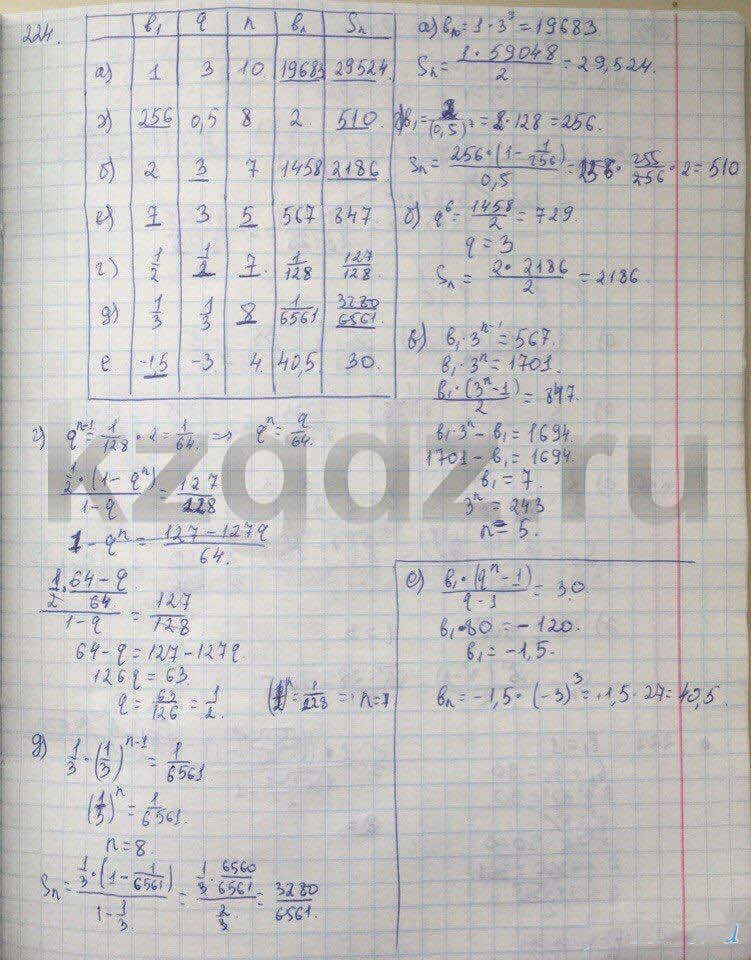 224.
b₁ q n bₙ Sₙ
а) 1 3 10 19683 29524
256 0,5 8 2 510
б) 2 3 7 1458 2186
7 3 5 567 847
г) 1/2 1/2 7 1/128 127/128
д) 1/3 1/3 8 1/6561 3280/6561
е -1,5 -3 4 40,5 30
а) b₁₀ = 1·3⁹ = 19683
Sₙ = (1·59048)/2 = 29,524.
b₁ = 2/(0,5)⁷ = 2·128 = 256.
Sₙ = 256·(1 - 1/256)/0,5 = 256 · 255/256 · 2 = 510
б) q⁶ = 1458/2 = 729.
q = 3
Sₙ = (2·2186)/2 = 2186.
в) b₁·3ⁿ⁻¹ = 567.
b₁·3ⁿ = 1701.
b₁·(3ⁿ-1)/2 = 847.
b₁·3ⁿ - b₁ = 1694.
1701 - b₁ = 1694.
b₁ = 7.
3ⁿ = 243
n = 5.
г) qⁿ⁻¹ = 1/128 · 2 = 1/64. => qⁿ = q/64.
1/2·(1-qⁿ)/(1-q) = 127/128
1 - qⁿ = (127-127q)/64.
(1/2 · (64-q)/64)/(1-q) = 127/128
64 - q = 127 - 127q.
126q = 63
q = 63/126 = 1/2. = 1/128 => n = 7
д) 1/3·(1/3)ⁿ⁻¹ = 1/6561
(1/3)ⁿ = 1/6561.
n = 8
Sₙ = 1/3·(1 - 1/6561)/(1 - 1/3) = (1/3 · 6560/6561)/(2/3) = 3280/6561.
е) b₁·(qⁿ-1)/(q-1) = 30.
b₁·80 = -120.
b₁ = -1,5.
bₙ = -1,5·(-3)³ = +1,5·27 = 40,5.
kzgdz.ru
1